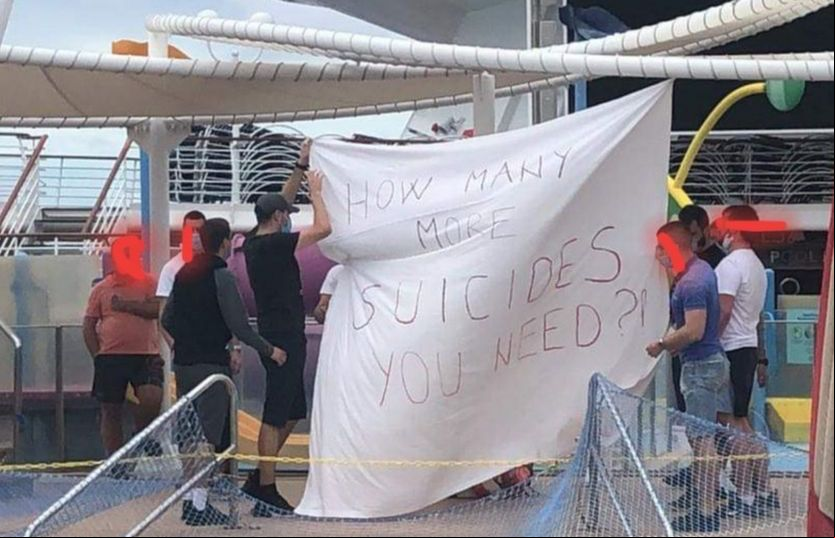 HOW MANY
MORE
SUICIDES
YOU NEED?!
POOL